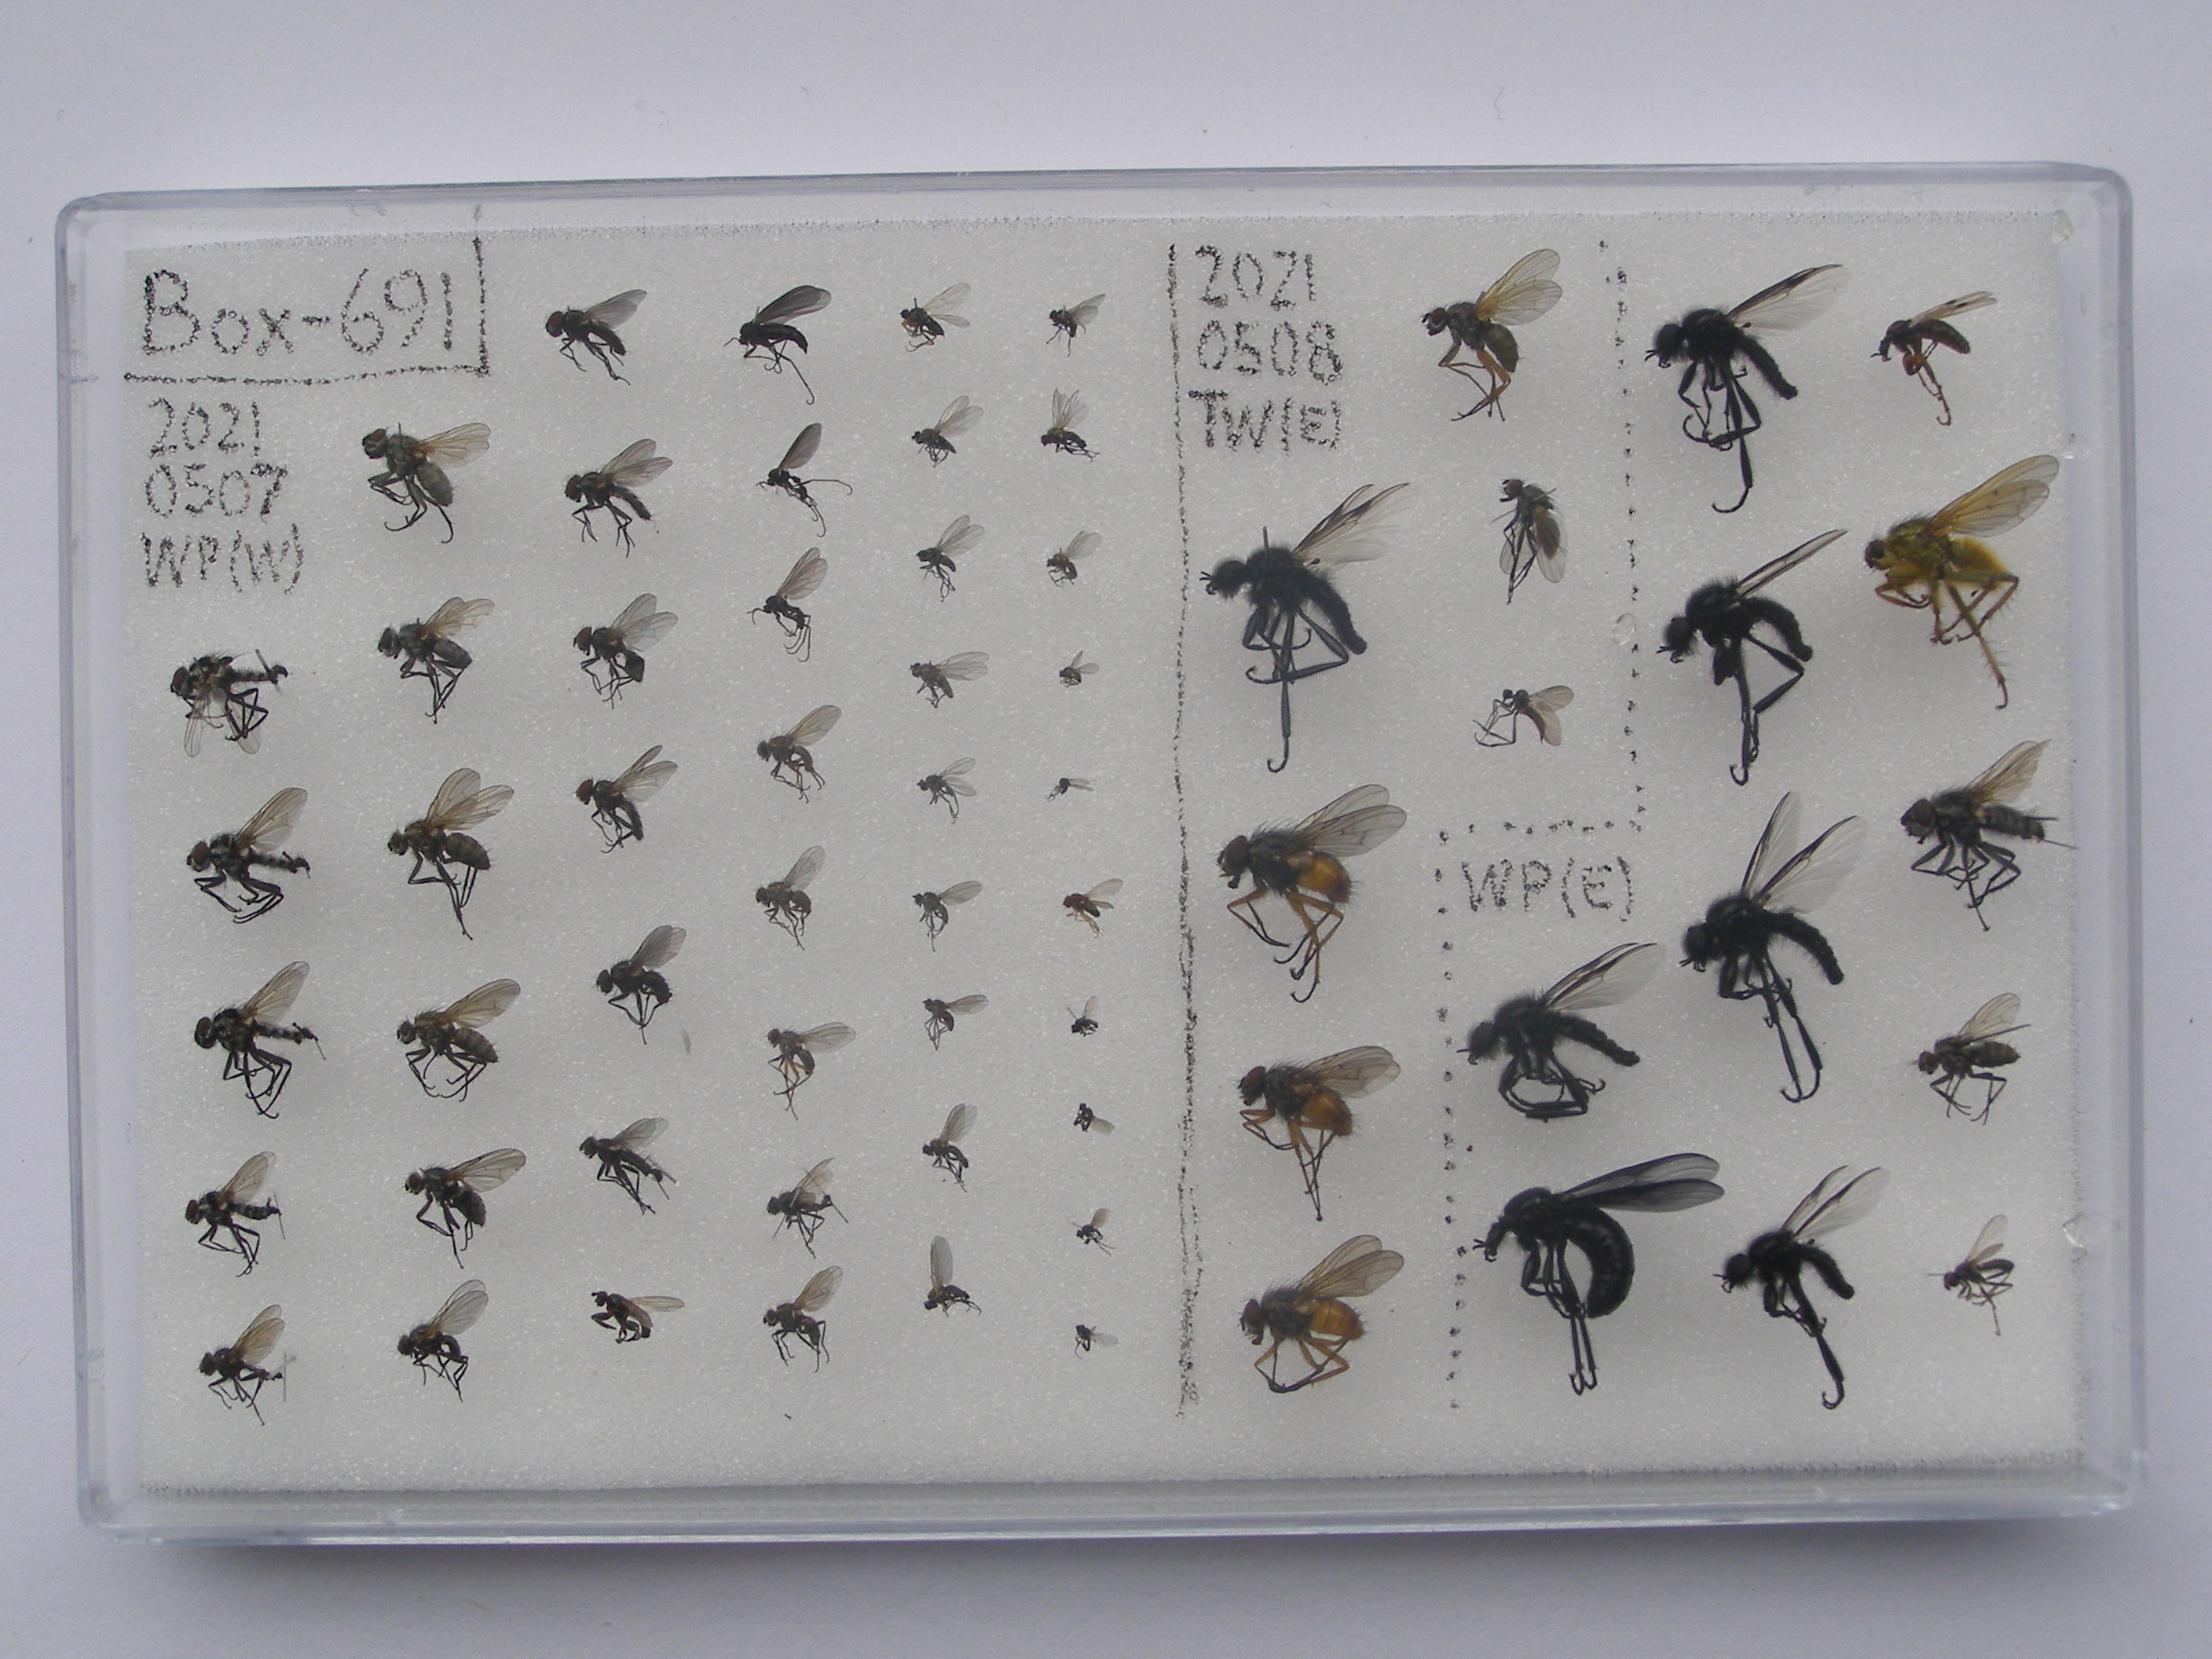 Box-691
2021
0507
WP(W)
2021
0508
TW(E)
WP(E)